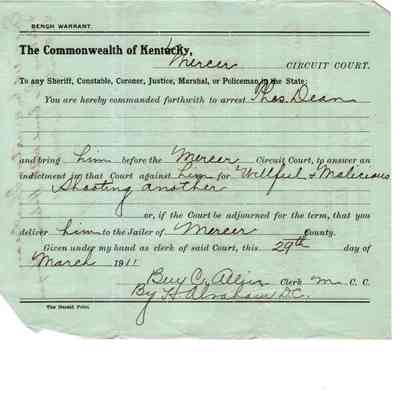 BENCH WARRANT.
The Commonwealth of Kentucky,
Mercer CIRCUIT COURT.
To any Sheriff, Constable, Coroner, Justice, Marshal, or Policeman in the State:
You are hereby commanded forthwith to arrest Thos. Dean
and bring him before the Mercer Circuit Court, to answer an
indictment in that Court against him for Willful & Malicious
Shooting another
or, if the Court be adjourned for the term, that you
deliver him to the Jailer of Mercer County.
Given under my hand as clerk of said Court, this 29th day of
March 1911
Ben C. Allin Clerk M. C. C.
By H Abraham D.C.
The Herald Print.